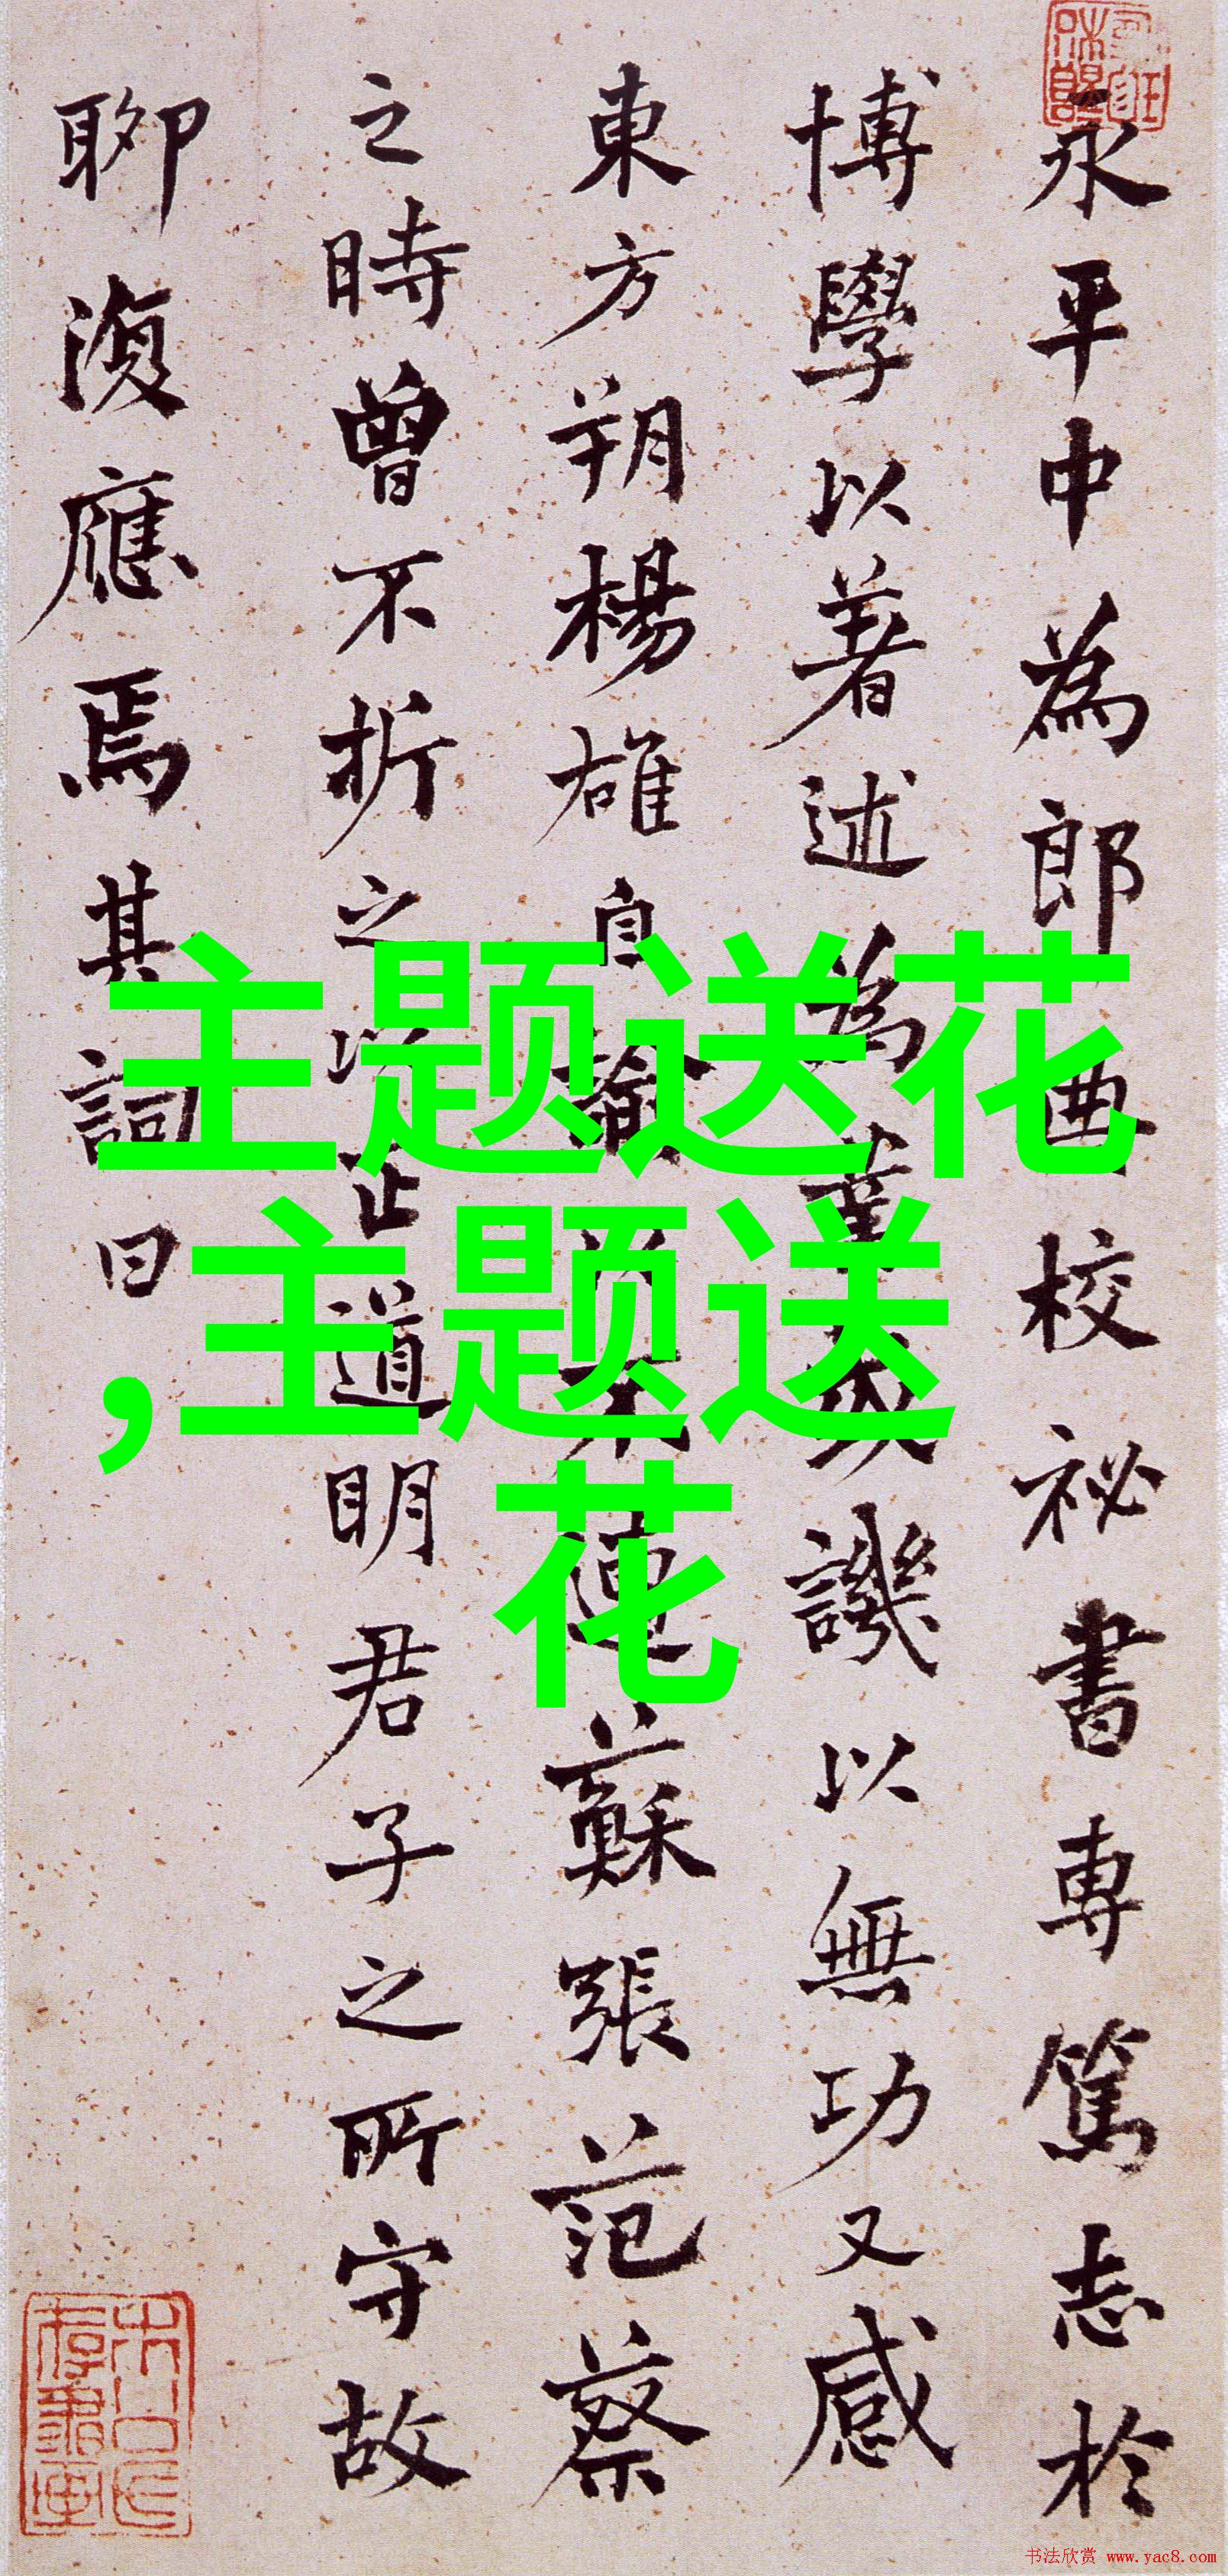 永平中為郎典校祕書專篤志於
博學以著述為業或譏以無功又感
東方朔楊雄自諭以不遭蘇張范蔡
之時曾不折之以正道明君子之所守故
聊復應焉其詞曰
主题送花
,主题送
花
书法欣赏 www.yac8.com